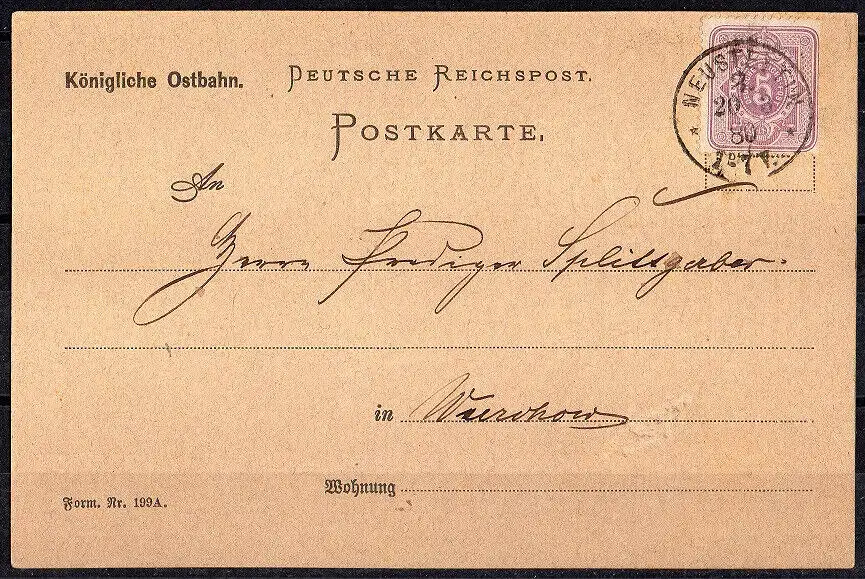 Königliche Ostbahn. DEUTSCHE REICHSPOST.
POSTKARTE.
NEUSTETTIN
5
20
80
An
Herrn Prediger Splittgerber.
in Wurchow
Wohnung
Form. Nr. 199A.